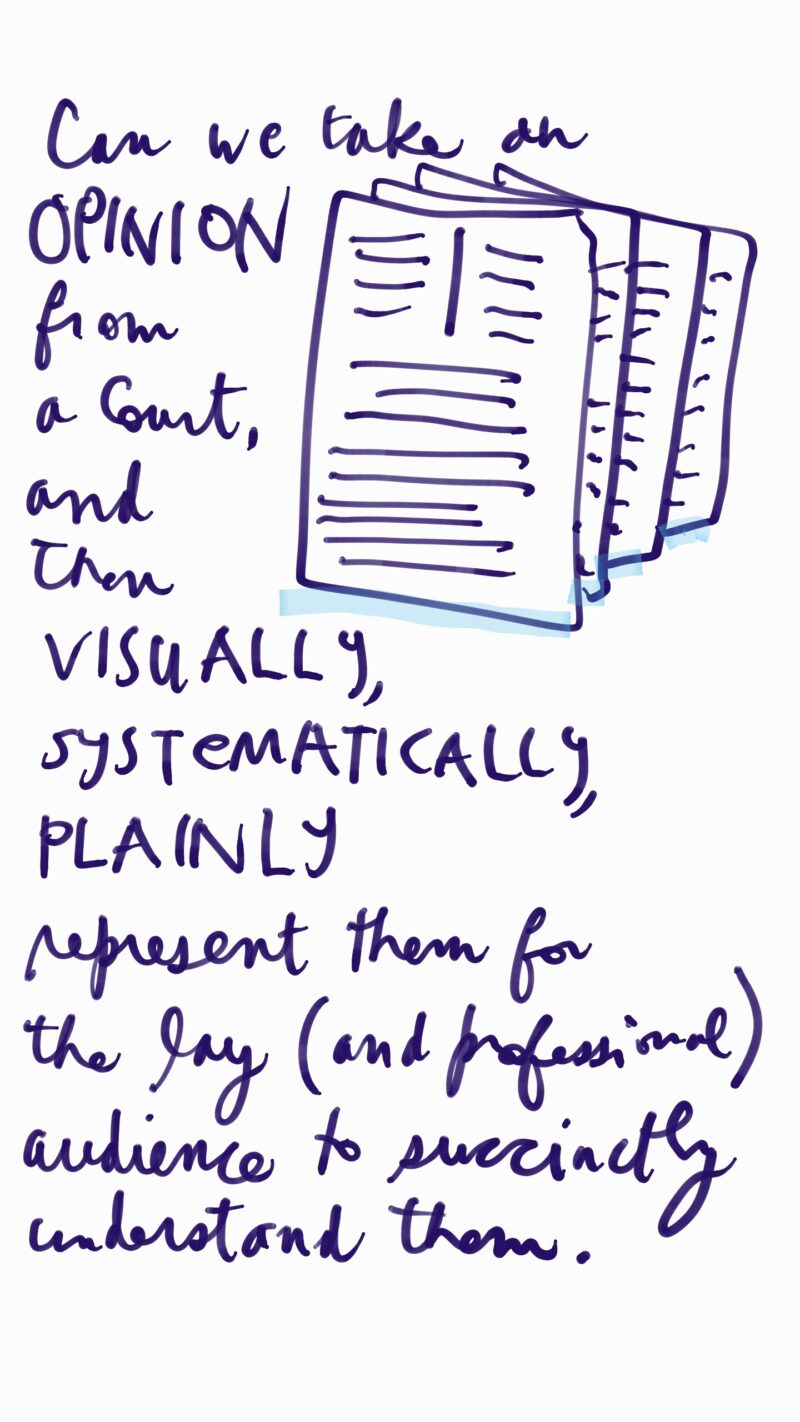 Can we take an
OPINION
from
a Court,
and
then
VISUALLY,
SYSTEMATICALLY,
PLAINLY
represent them for
the lay (and professional)
audience to succinctly
understand them.